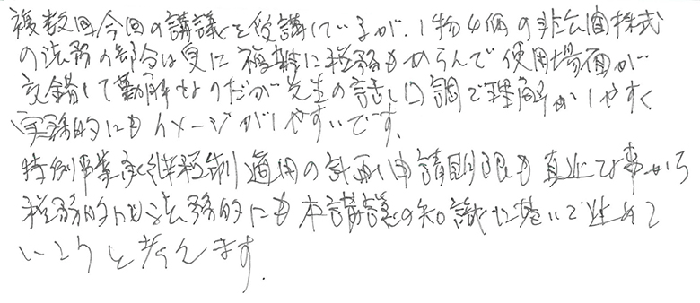 複数回、今回の講議を受講しているが、1物4価の非公開株式
の法務の部分は更に複雑に税務もからんで使用場面が
交錯して難解なのだが先生の話し口調で理解がしやすく
実務的にもイメージがしやすいです。
特例事業承継税制適用の計画申請期限も真近な事から
税務的にも法務的にも本講議の知識に基いて進めて
いこうと考えます。